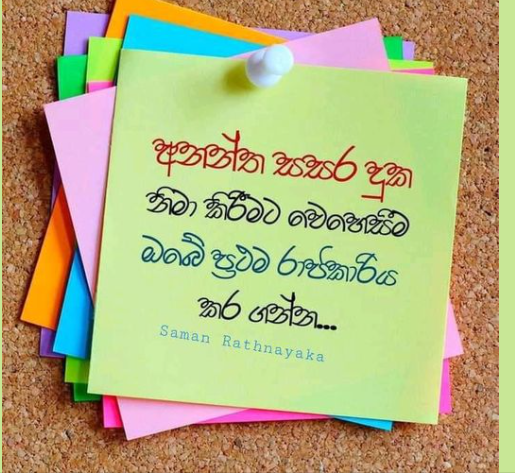 අනන්ත සසර දුක
නිමා කිරීමට වෙහෙසීම
ඔබේ ප්‍රථම රාජකාරිය
කර ගන්න...
Saman Rathnayaka